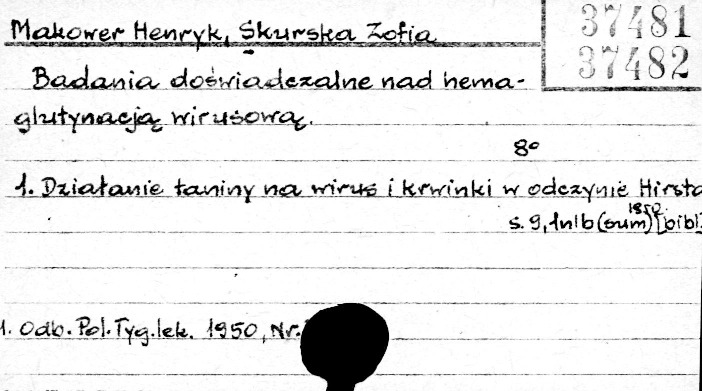 Makower Henryk, Skurska Zofia
37481
37482
Badania doświadczalne nad hema-
glutynacją wirusową.
8°
1. Działanie taniny na wirus i krwinki w odczynie Hirsta
1950.
s. 9, 1nlb (sum) [bibl]
1. Odb. Pol. Tyg. lek. 1950, Nr.